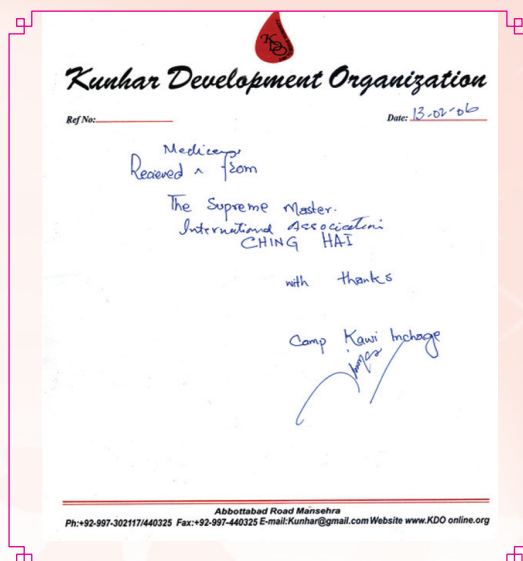 KDO
Kunhar Development Organization
Ref No:
Date: 13-02-06
Medicenes
Recieved ^ from
The Supreme Master.
International Association
CHING HAI
with thanks
Camp Kawi Inchage
Abbottabad Road Mansehra
Ph:+92-997-302117/440325 Fax:+92-997-440325 E-mail:Kunhar@gmail.com Website www.KDO online.org